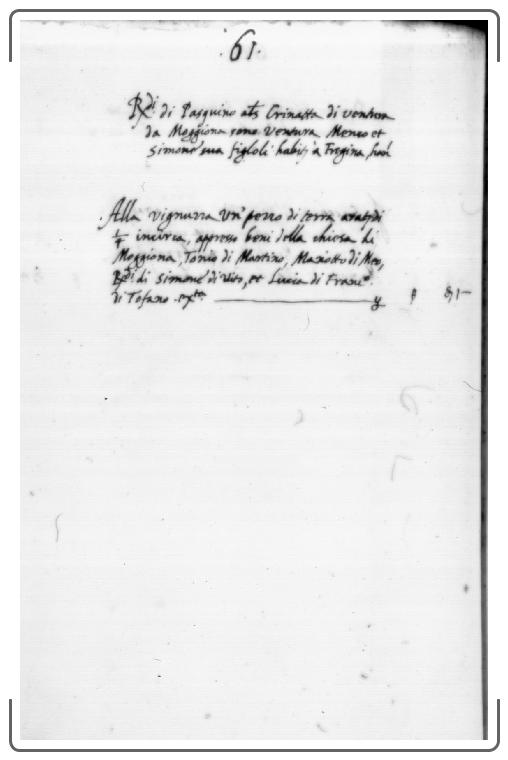 .61.
Rdi. di Pasquino als Crinatta di ventura
da Moggiona sono Ventura Menco et
Simone sua figloli habiti a Fregina
Alla vignurza Un pezzo di terra arat. di
1/4 incirca, appresso beni della chiesa di
Moggiona, Tonio di Martino, Mariotto di Meo,
Rdi. di Simone di Vito, et Lucia di Franc.o
di Tofano